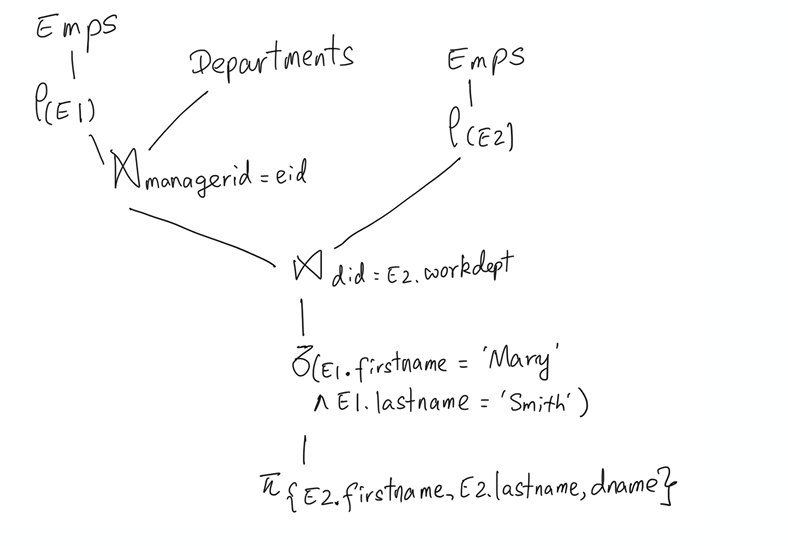 Emps
Departments
Emps
ρ(E1)
ρ(E2)
⋈ managerid = eid
⋈ did = E2.workdept
σ(E1.firstname = 'Mary'
∧ E1.lastname = 'Smith')
π{E2.firstname, E2.lastname, dname}